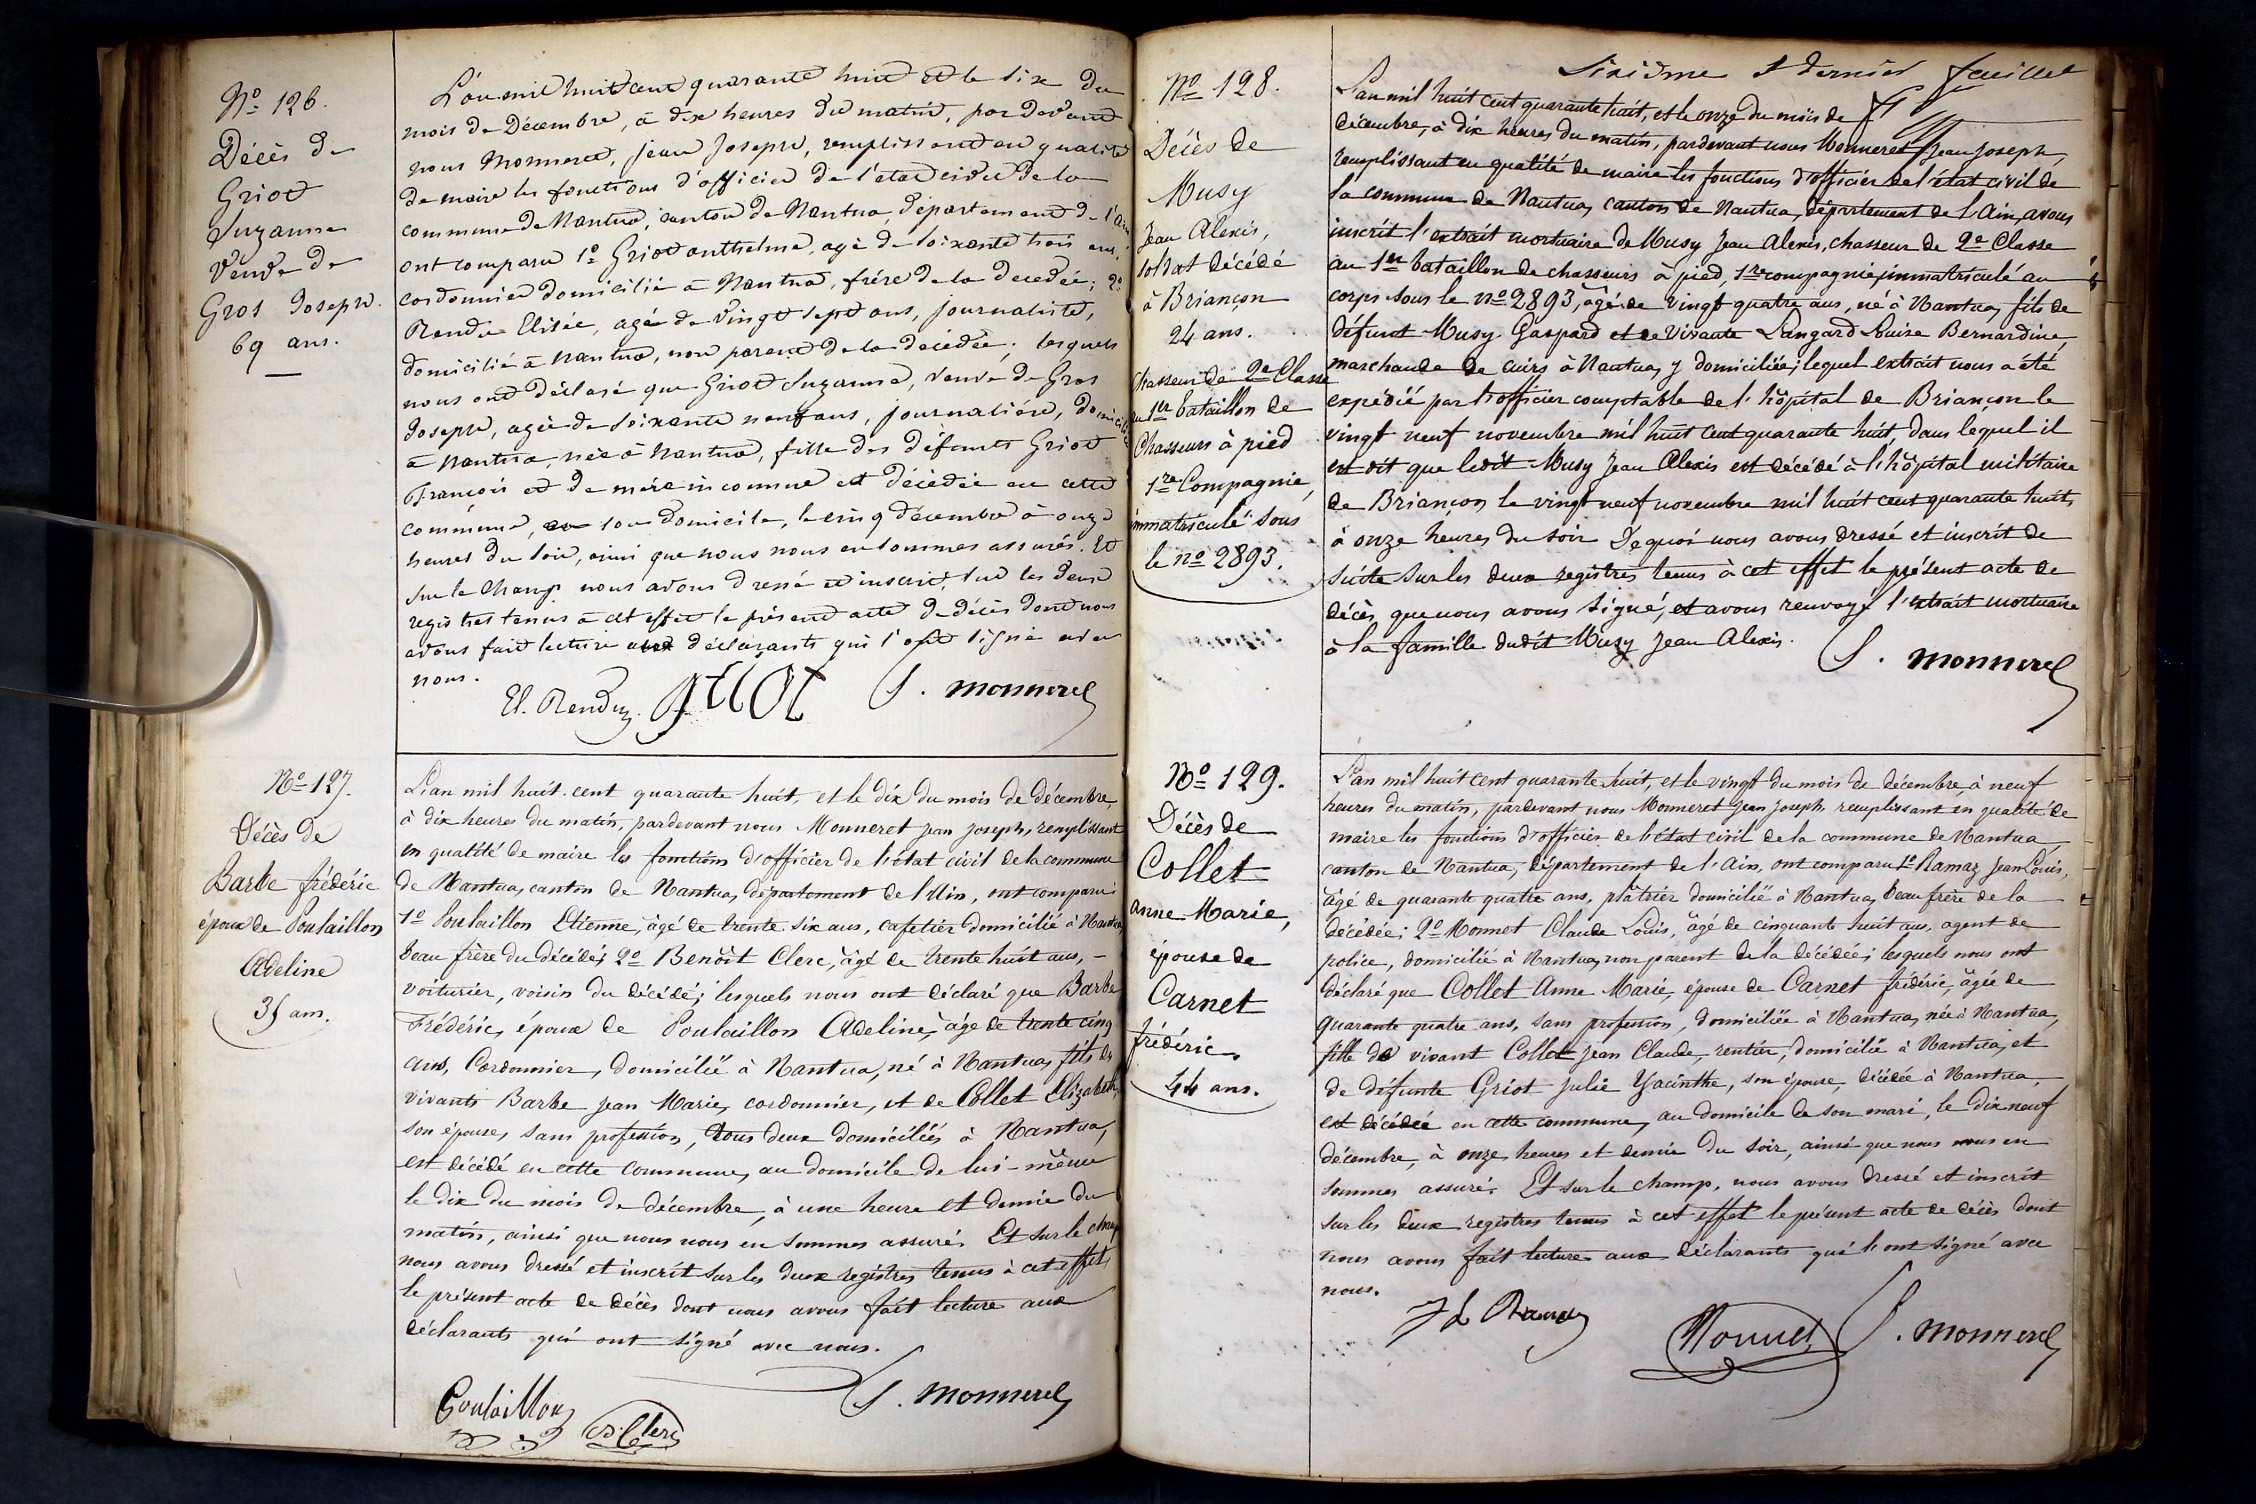 No 126.
Décès de
Griot
Suzanne
Veuve de
Gros Joseph.
69 ans.
L'an mil huit cent quarante huit et le six du
mois de Décembre, à dix heures du matin, par devant
nous Monneret, jean Joseph, remplissant en qualité
de maire les fonctions d'officier de l'état civil de la
commune de Nantua, canton de Nantua, département de l'ain
ont comparu 1o Griot anthelme, agé de soixante trois ans,
cordonnier domicilié à Nantua, frère de la decedée; 2o
Rendu Elisée, agé de vingt sept ans, journaliste,
domicilié à Nantua, non parent de la décédée; lesquels
nous ont déclaré que Griot Suzanne, veuve de Gros
Joseph, agée de soixante neuf ans, journalière, domiciliée
à Nantua, née à Nantua, fille des défunts Griot
François et de mère inconnue est décédée en cette
commune, en son domicile, le cinq décembre à onze
heures du soir, ainsi que nous nous en sommes assurés. Et
sur le champ nous avons dressé et inscrit sur les deux
registres tenus à cet effet le présent acte de décès dont nous
avons fait lecture aux déclarants qui l'ont signé avec
nous.
El. Rendu Griot J. monneret
No 127.
Décès de
Barbe frédéric
époux de Poulaillon
Adeline
35 ans.
L'an mil huit cent quarante huit, et le dix du mois de décembre
à dix heures du matin, pardevant nous Monneret jean joseph, remplissant
en qualité de maire les fonctions d'officier de l'état civil de la commune
de Nantua, canton de Nantua, département de l'Ain, ont comparu:
1o Poulaillon Etienne, âgé de trente six ans, cafetier domicilié à Nantua
beau frère du décédé; 2o Benoît Clerc, âgé de trente huit ans, -
voiturier, voisin du décédé; lesquels nous ont déclaré que Barbe
Frédéric, époux de Poulaillon Adeline, âgé de trente cinq
ans, Cordonnier, domicilié à Nantua, né à Nantua, fils de
vivants Barbe jean Marie, cordonnier, et de Collet Elizabeth,
son épouse, sans profession, tous deux domiciliés à Nantua,
est décédé en cette commune, au domicile de lui-même
le dix du mois de décembre, à une heure et demie du
matin, ainsi que nous nous en sommes assuré. Et sur le champ
nous avons dressé et inscrit sur les deux registres tenus à cet effet
le présent acte de décès dont nous avons fait lecture aux
déclarants qui ont signé avec nous.
J. monneret
Poulaillon B. Clerc
Sixième & dernier feuillet
No 128.
Décès de
Musy
Jean Alexis,
soldat décédé
à Briançon
24 ans.
Chasseur de 2e Classe
au 1er bataillon de
Chasseurs à pied
1re Compagnie,
immatriculé sous
le no 2893.
L'an mil huit cent quarante huit, et le onze du mois de
décembre, à dix heures du matin, pardevant nous Monneret Jean joseph,
remplissant en qualité de maire les fonctions d'officier de l'état civil de
la commune de Nantua, canton de Nantua, département de l'Ain, avons
inscrit l'extrait mortuaire de Musy Jean Alexis, chasseur de 2e Classe
au 1er bataillon de chasseurs à pied, 1re compagnie, immatriculé au
corps sous le no 2893, âgé de vingt quatre ans, né à Nantua, fils de
défunt Musy Gaspard et de vivante Langard Louise Bernardine,
marchande de cuirs à Nantua, y domiciliée; lequel extrait nous a été
expédié par l'officier comptable de l'hôpital de Briançon le
vingt neuf novembre mil huit cent quarante huit, dans lequel il
est dit que ledit Musy Jean Alexis est décédé à l'hôpital militaire
de Briançon le vingt neuf novembre mil huit cent quarante huit,
à onze heures du soir De quoi nous avons dressé et inscrit de
suite sur les deux registres tenus à cet effet le présent acte de
décès que nous avons signé, et avons renvoyé l'extrait mortuaire
à la famille dudit Musy Jean Alexis.
J. monneret
No 129.
Décès de
Collet
anne Marie,
épouse de
Carnet
frédéric.
44 ans.
L'an mil huit cent quarante huit, et le vingt du mois de décembre, à neuf
heures du matin, pardevant nous Monneret Jean joseph remplissant en qualité de
maire les fonctions d'officier de l'état civil de la commune de Nantua
canton de Nantua, département de l'Ain, ont comparu 1o Ramaz Jean Louis,
âgé de quarante quatre ans, plâtrier domicilié à Nantua, beau frère de la
décédée; 2o Monnet Claude Louis, âgé de cinquante huit ans, agent de
police, domicilié à Nantua, non parent de la décédée; lesquels nous ont
déclaré que Collet Anne Marie, épouse de Carnet frédéric, âgée de
quarante quatre ans, sans profession, domiciliée à Nantua, née à Nantua,
fille de vivant Collet Jean Claude, rentier, domicilié à Nantua, et
de défunte Griot Julie Yacinthe, son épouse, décédée à Nantua,
est décédée en cette commune, au domicile de son mari, le dix neuf
décembre, à onze heures et demie du soir, ainsi que nous nous en
sommes assuré. Et sur le champ, nous avons dressé et inscrit
sur les deux registres tenus à cet effet le présent acte de décès dont
nous avons fait lecture aux déclarants qui l'ont signé avec
nous.
J L Ramaz Monnet J. monneret